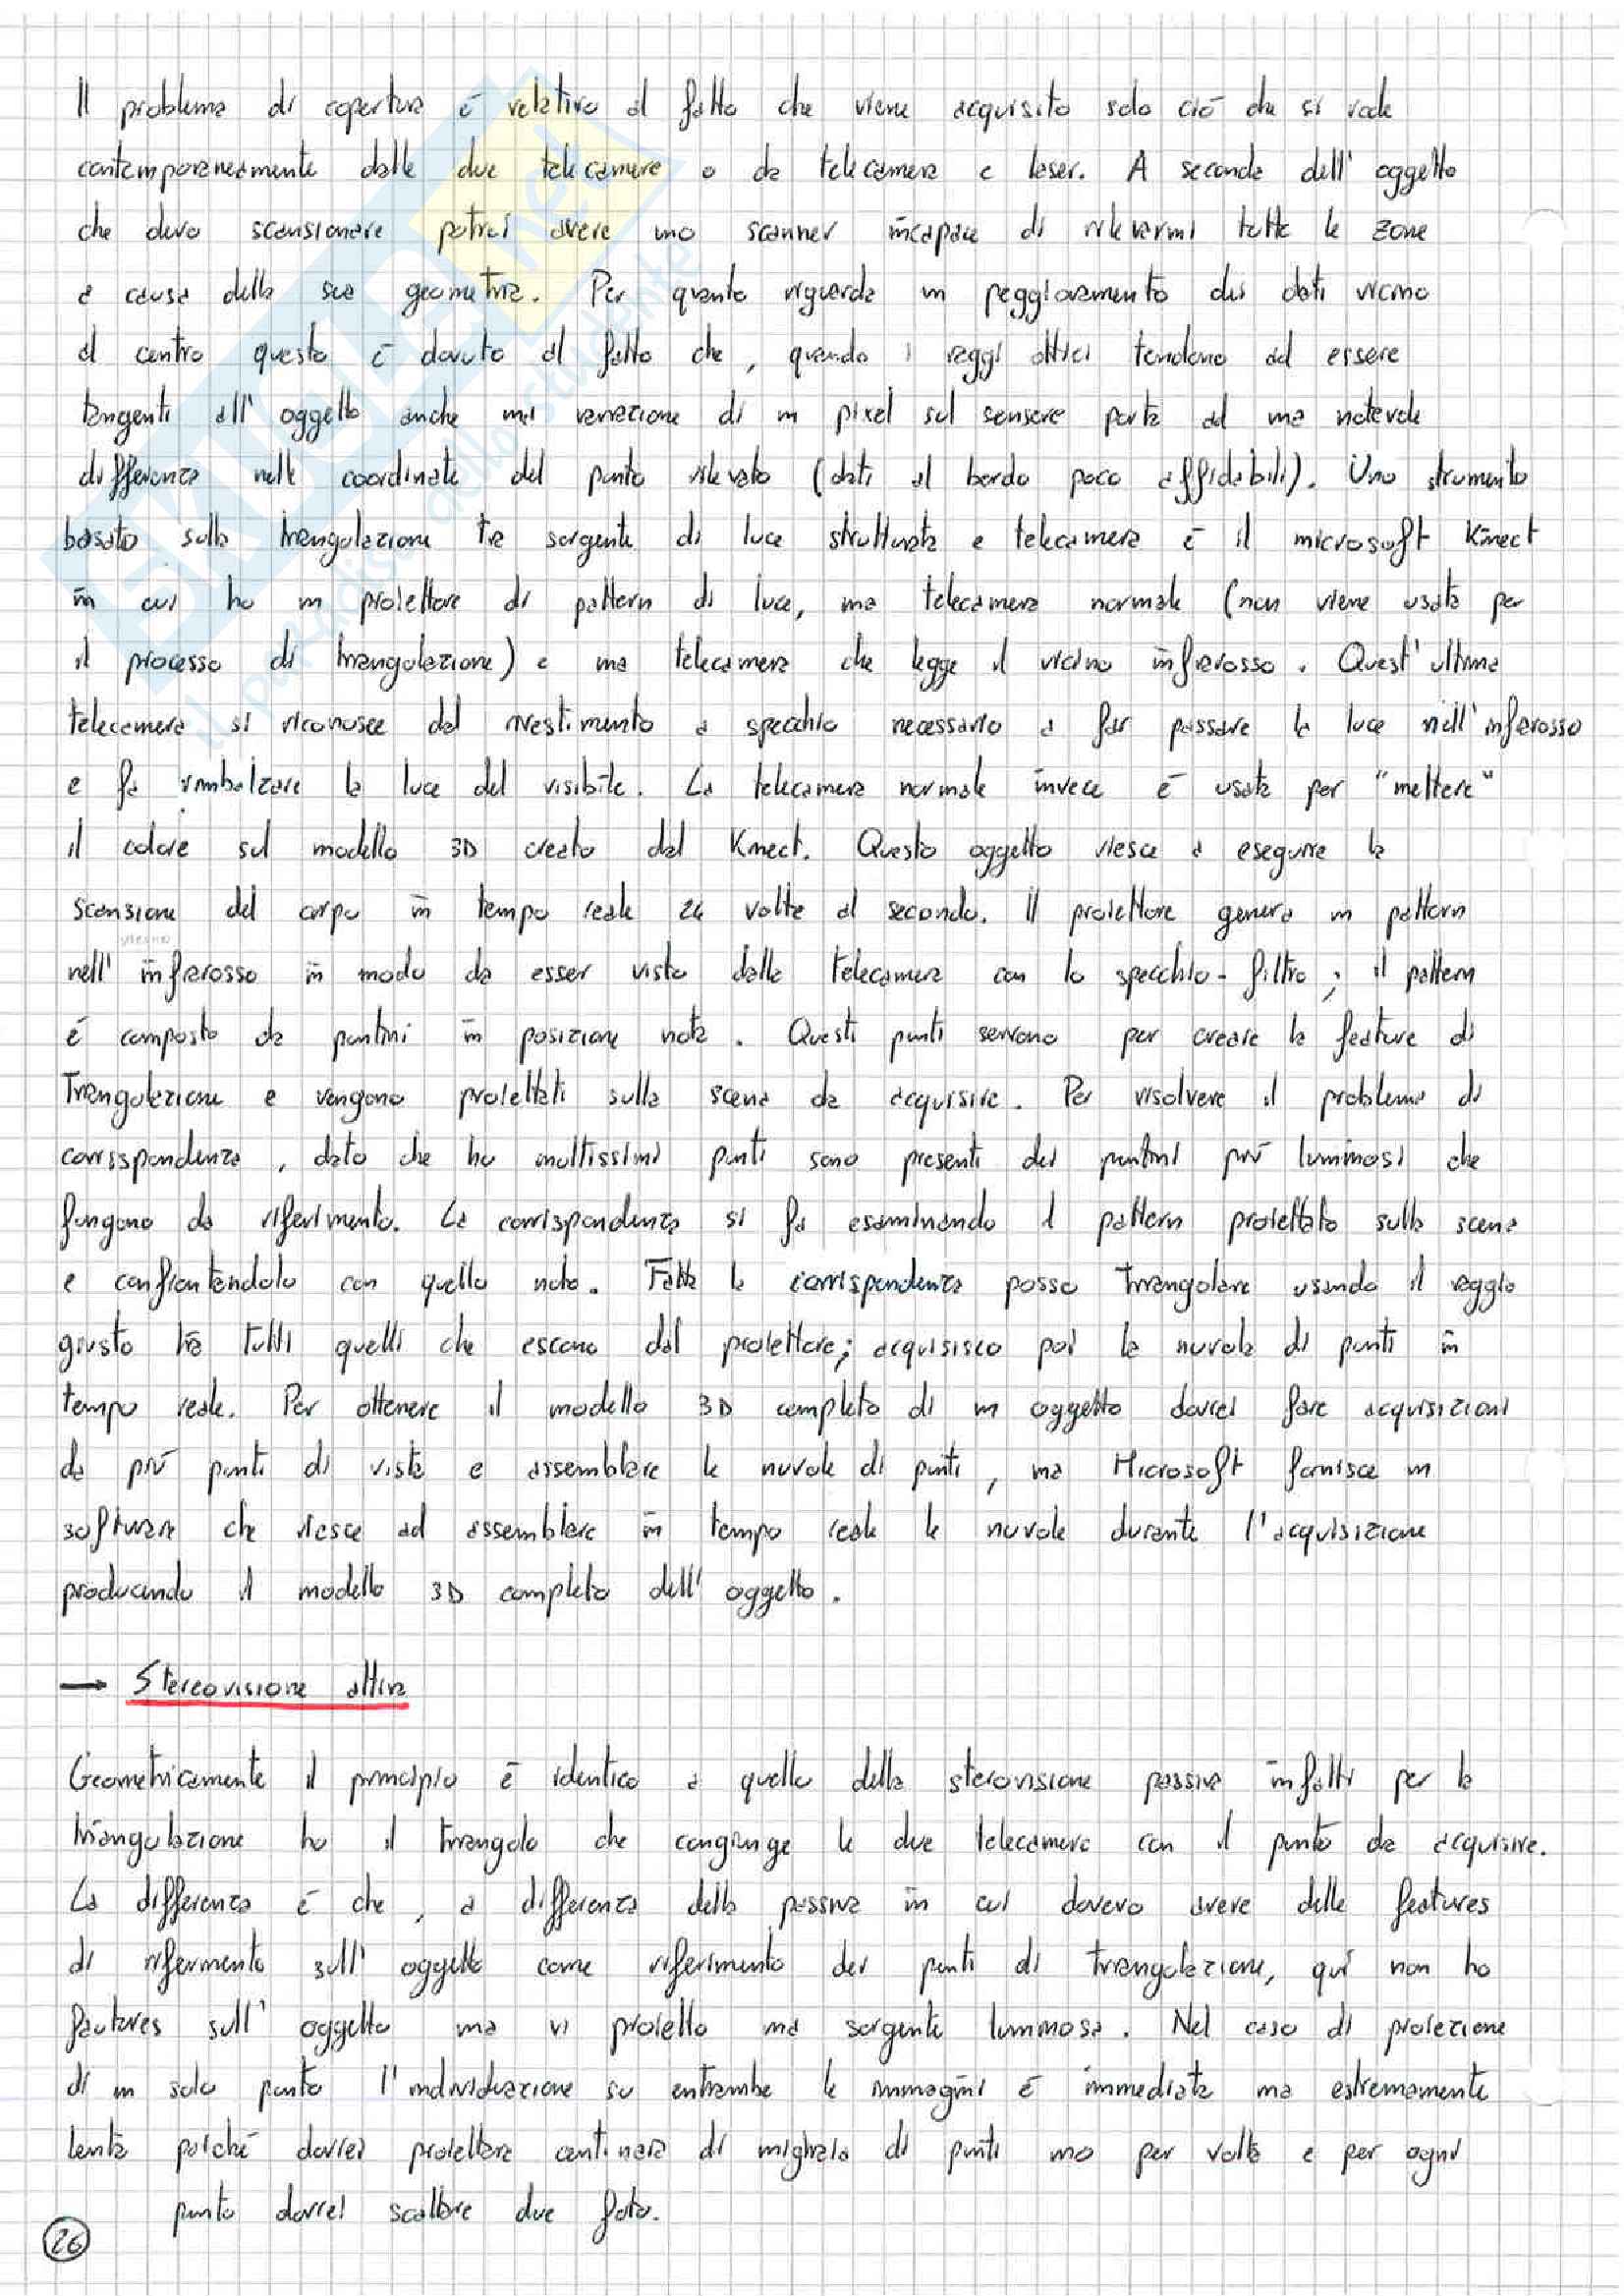 Il problema di copertura è relativo al fatto che viene acquisito solo ciò che si vede
contemporaneamente dalle due telecamere o da telecamera e laser. A seconda dell' oggetto
che devo scansionare potrei avere uno scanner incapace di rilevarmi tutte le zone
a causa della sua geometria. Per quanto riguarda un peggioramento dei dati vicino
al centro questo è dovuto al fatto che, quando i raggi ottici tendono ad essere
tangenti all' oggetto anche una variazione di un pixel sul sensore porta ad una notevole
differenza nelle coordinate del punto rilevato (dati al bordo poco affidabili). Uno strumento
basato sulla triangolazione tra sorgente di luce strutturata e telecamera è il microsoft Kinect
in cui ho un proiettore di pattern di luce, una telecamera normale (non viene usata per
il processo di triangolazione) e una telecamera che legge il vicino infrarosso. Quest' ultima
telecamera si riconosce dal rivestimento a specchio necessario a far passare la luce nell' infrarosso
e fa rimbalzare la luce del visibile. La telecamera normale invece è usata per "mettere"
il colore sul modello 3D creato dal Kinect. Questo oggetto riesce a eseguire la
scansione del corpo in tempo reale 24 volte al secondo. Il proiettore genera un pattern
vicino
nell' infrarosso in modo da esser visto dalla telecamera con lo specchio-filtro; il pattern
è composto da puntini in posizione nota. Questi punti servono per creare la feature di
Triangolazione e vengono proiettati sulla scena da acquisire. Per risolvere il problema di
corrispondenza, dato che ho moltissimi punti sono presenti dei puntini più luminosi che
fungono da riferimento. La corrispondenza si fa esaminando il pattern proiettato sulla scena
e confrontandolo con quello noto. Fatta la corrispondenza posso Triangolare usando il raggio
giusto tra tutti quelli che escono dal proiettore; acquisisco poi la nuvola di punti in
tempo reale. Per ottenere il modello 3D completo di un oggetto dovrei fare acquisizioni
da più punti di vista e assemblare le nuvole di punti, ma Microsoft fornisce un
software che riesce ad assemblare in tempo reale le nuvole durante l'acquisizione
producendo il modello 3D completo dell' oggetto.
→ Stereovisione attiva
Geometricamente il principio è identico a quello della sterovisione passiva infatti per la
triangolazione ho il triangolo che congiunge le due telecamere con il punto da acquisire.
La differenza è che, a differenza della passiva in cui dovevo avere delle features
di riferimento sull' oggetto come riferimento dei punti di triangolazione, qui non ho
features sull' oggetto ma vi proietto una sorgente luminosa. Nel caso di proiezione
di un solo punto l'individuazione su entrambe le immagini è immediata ma estremamente
lenta poiché dovrei proiettare centinaia di migliaia di punti uno per volta e per ogni
punto dovrei scattare due foto.
26
SKUOLA.net
il paradiso dello studente